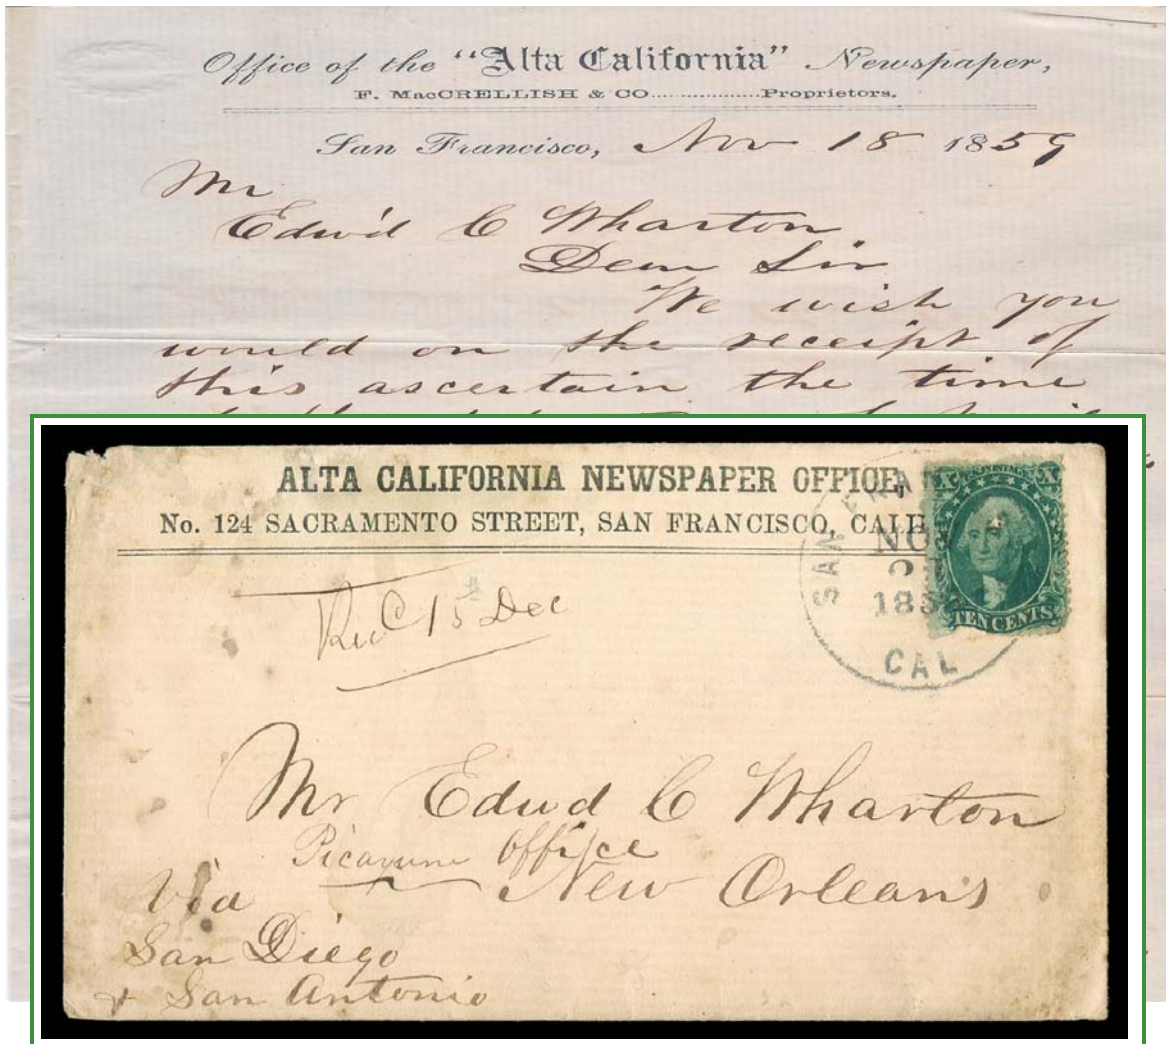 Office of the "Alta California" Newspaper,
F. MacCRELLISH & CO..................Proprietors.
San Francisco, Nov 18 1859
Mr
Edw'd C Wharton
Dear Sir
We wish you
would on the receipt of
this ascertain the time
ALTA CALIFORNIA NEWSPAPER OFFICE,
No. 124 SACRAMENTO STREET, SAN FRANCISCO, CALIF
SAN FRAN
NO
185
CAL
X U.S. POSTAGE X
TEN CENTS
Rec'd 15th Dec
Mr Edwd C Wharton
Picayune Office
New Orleans
Via
San Diego
& San Antonio